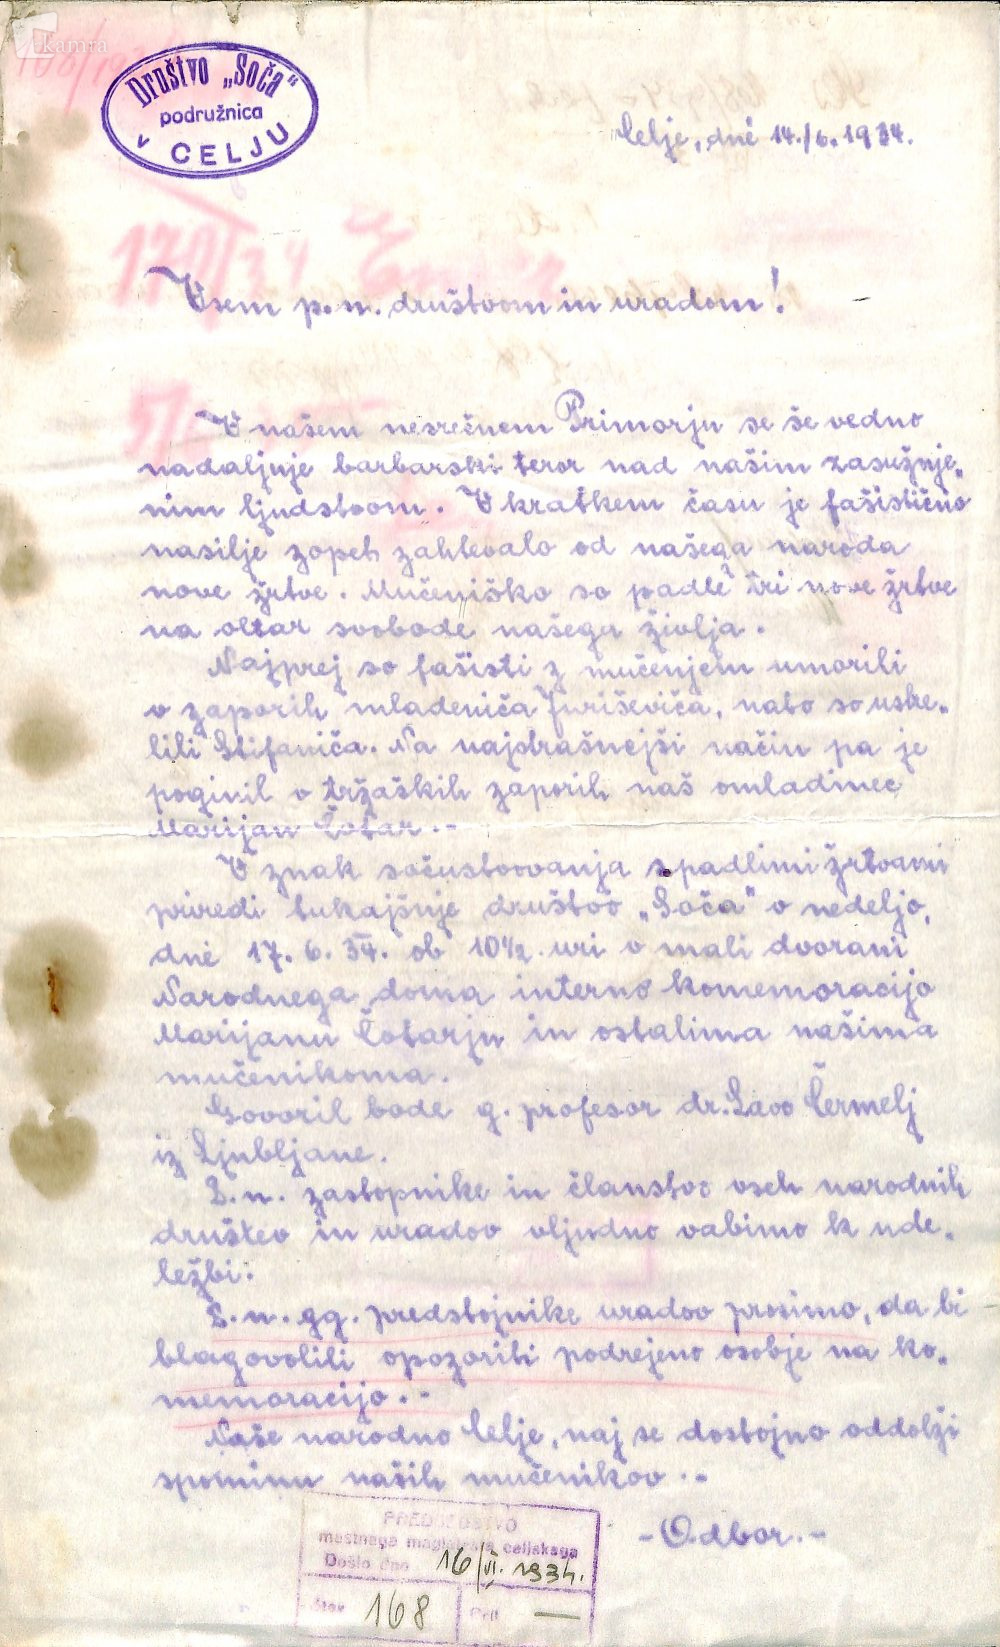 kamra
Društvo „Soča“
podružnica
v CELJU
Celje, dné 14./6. 1934.
170/34
Vsem p. n. društvom in uradom!
V našem nesrečnem Primorju se še vedno
nadaljuje barbarski teror nad našim zasužnje-
nim ljudstvom. V kratkem času je fašistično
nasilje zopet zahtevalo od našega naroda
nove žrtve. Mučeniško so padle tri nove žrtve
na oltar svobode našega življa.
Najprej so fašisti z mučenjem umorili
v zaporih mladeniča Juriševiča, nato so ustre-
lili Štifaniča. Na najstrašnejši način pa je
poginil v tržaških zaporih naš omladinec
Marijan Čotar.-
V znak sočustvovanja s padlimi žrtvami
priredi tukajšnje društvo „Soča“ v nedeljo,
dné 17. 6. 34. ob 10½ uri v mali dvorani
Narodnega doma interno komemoracijo
Marijanu Čotarju in ostalima našima
mučenikoma.
Govoril bode g. profesor dr. Lavo Čermelj
iz Ljubljane.
P. n. zastopnike in članstvo vseh narodnih
društev in uradov vljudno vabimo k ude-
ležbi.
P. n. gg. predstojnike uradov prosimo, da bi
blagovolili opozoriti podrejeno osobje na ko-
memoracijo.-
Naše narodno Celje, naj se dostojno oddolži
spominu naših mučenikov.-
-Odbor.-
PREDSEDSTVO
mestnega magistrata celjskega
Došlo dne 16/VI. 1934.
Štev 168 Pril —